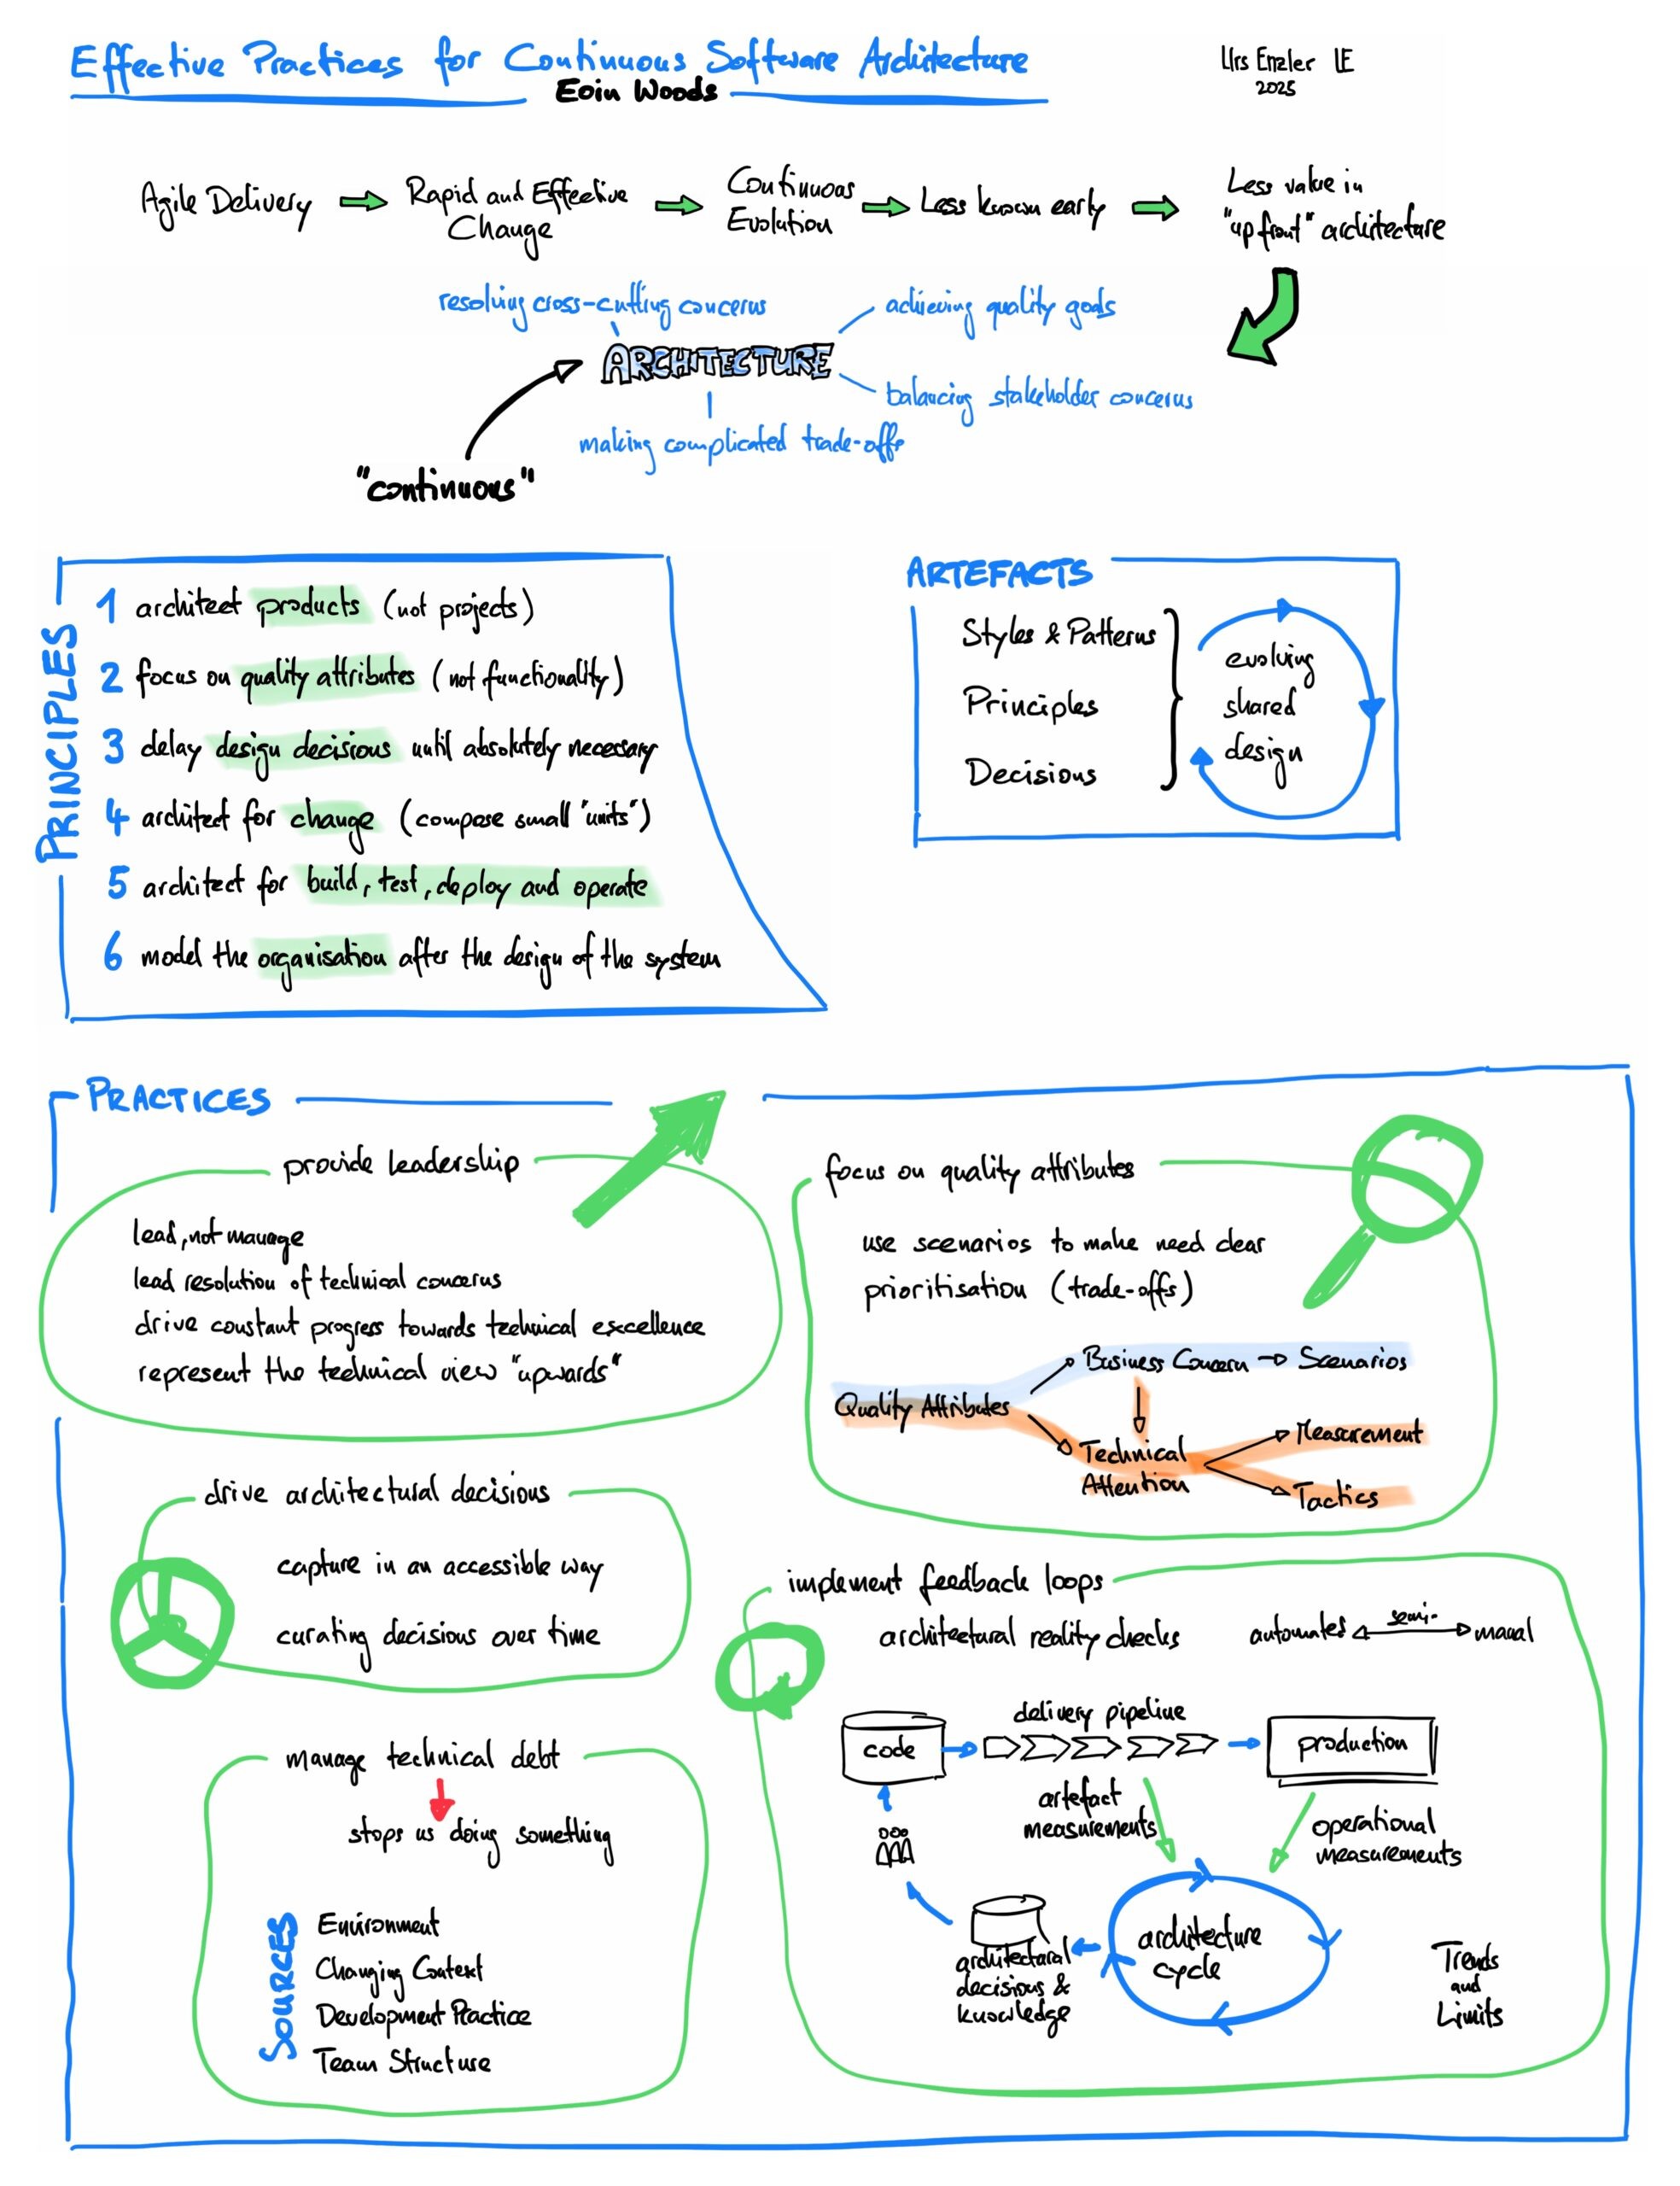 Effective Practices for Continuous Software Architecture
Eoin Woods
Urs Enzler UE
2025
Agile Delivery
Rapid and Effective
Change
Continuous
Evolution
Less known early
Less value in
"up front" architecture
resolving cross-cutting concerns
achieving quality goals
ARCHITECTURE
balancing stakeholder concerns
making complicated trade-offs
"continuous"
PRINCIPLES
1 architect products (not projects)
2 focus on quality attributes (not functionality)
3 delay design decisions until absolutely necessary
4 architect for change (compose small "units")
5 architect for build, test, deploy and operate
6 model the organisation after the design of the system
ARTEFACTS
Styles & Patterns
Principles
Decisions
evolving
shared
design
PRACTICES
provide leadership
lead, not manage
lead resolution of technical concerns
drive constant progress towards technical excellence
represent the technical view "upwards"
focus on quality attributes
use scenarios to make need clear
prioritisation (trade-offs)
Quality Attributes
Business Concern
Scenarios
Technical
Attention
Measurement
Tactics
drive architectural decisions
capture in an accessible way
curating decisions over time
implement feedback loops
architectural reality checks
automated
semi-
manual
code
delivery pipeline
production
artefact
measurements
operational
measurements
architecture
cycle
architectural
decisions &
knowledge
Trends
and
Limits
manage technical debt
stops us doing something
SOURCES
Environment
Changing Context
Development Practice
Team Structure